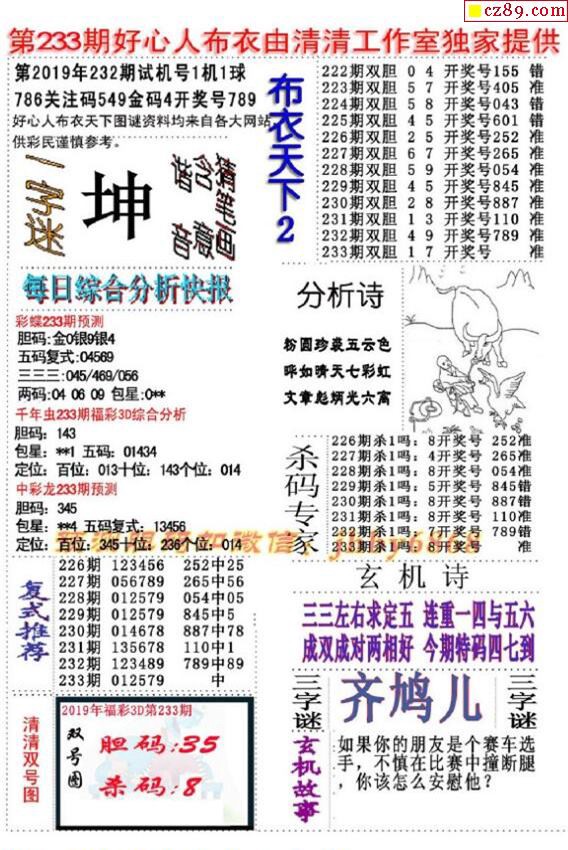 cz89.com
第233期好心人布衣由清清工作室独家提供
第2019年232期试机号1机1球
786关注码549金码4开奖号789
好心人布衣天下图谜资料均来自各大网站
供彩民谨慎参考。
一字谜
坤
谐音
含意
猜笔画
每日综合分析快报
彩蝶233期预测
胆码:金0银9银4
五码复式:04569
三三三:045/469/056
两码:04 06 09 包星:0**
千年虫233期福彩3D综合分析
胆码: 143
包星: **1 五码: 01434
定位: 百位: 013十位: 143个位: 014
中彩龙233期预测
胆码: 345
包星: **4 五码复式: 13456
定位: 百位: 345十位: 236个位: 014
复式推荐
226期 123456 252中25
227期 056789 265中56
228期 012579 054中05
229期 012579 845中5
230期 014678 887中78
231期 135678 110中1
232期 123489 789中89
233期 012579 中
清清双号图
2019年福彩3D第233期
双号图
胆码:35
杀码:8
布衣天下2
222期双胆 0 4 开奖号155 错
223期双胆 5 7 开奖号405 准
224期双胆 5 8 开奖号043 错
225期双胆 4 5 开奖号601 错
226期双胆 2 5 开奖号252 准
227期双胆 6 7 开奖号265 准
228期双胆 5 9 开奖号054 准
229期双胆 4 5 开奖号845 准
230期双胆 2 8 开奖号887 准
231期双胆 1 3 开奖号110 准
232期双胆 4 9 开奖号789 准
233期双胆 1 7 开奖号 准
分析诗
粉圆珍裘五云色
晔如晴天七彩虹
文章彪炳光六鬲
杀码专家
226期杀1吗: 8开奖号 252准
227期杀1吗: 4开奖号 265准
228期杀1吗: 8开奖号 054准
229期杀1吗: 5开奖号 845错
230期杀1吗: 8开奖号 887错
231期杀1吗: 8开奖号 110准
232期杀1吗: 7开奖号 789错
233期杀1吗: 8开奖号 准
玄机诗
三三左右求定五 连重一四与五六
成双成对两相好 今期特码四七到
三字谜
齐鸠儿
三字谜
玄机故事
如果你的朋友是个赛车选
手，不慎在比赛中撞断腿
，你该怎么安慰他？